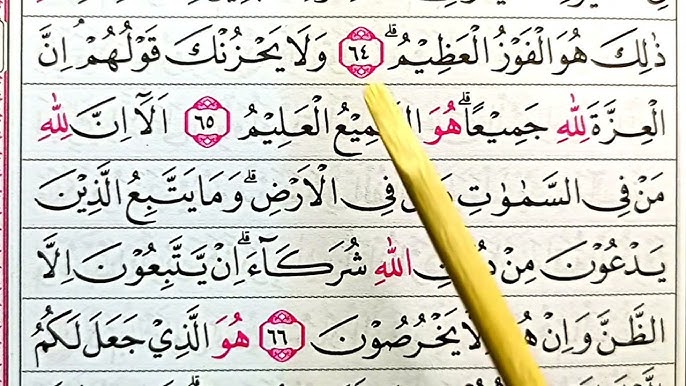 ذٰلِكَ هُوَ الْفَوْزُ الْعَظِيْمُۗ ٦٤ وَلَا يَحْزُنْكَ قَوْلُهُمْۘ اِنَّ
الْعِزَّةَ لِلّٰهِ جَمِيْعًاۗ هُوَ الْعَلِيْمُ ٦٥ اَلَآ اِنَّ لِلّٰهِ
مَنْ فِى السَّمٰوٰتِ فِى الْاَرْضِۗ وَمَا يَتَّبِعُ الَّذِيْنَ
يَدْعُوْنَ مِنْ اللّٰهِ شُرَكَاۤءَۗ اِنْ يَّتَّبِعُوْنَ اِلَّا
الظَّنَّ وَاِنْ يَخْرُصُوْنَ ٦٦ هُوَ الَّذِيْ جَعَلَ لَكُمُ